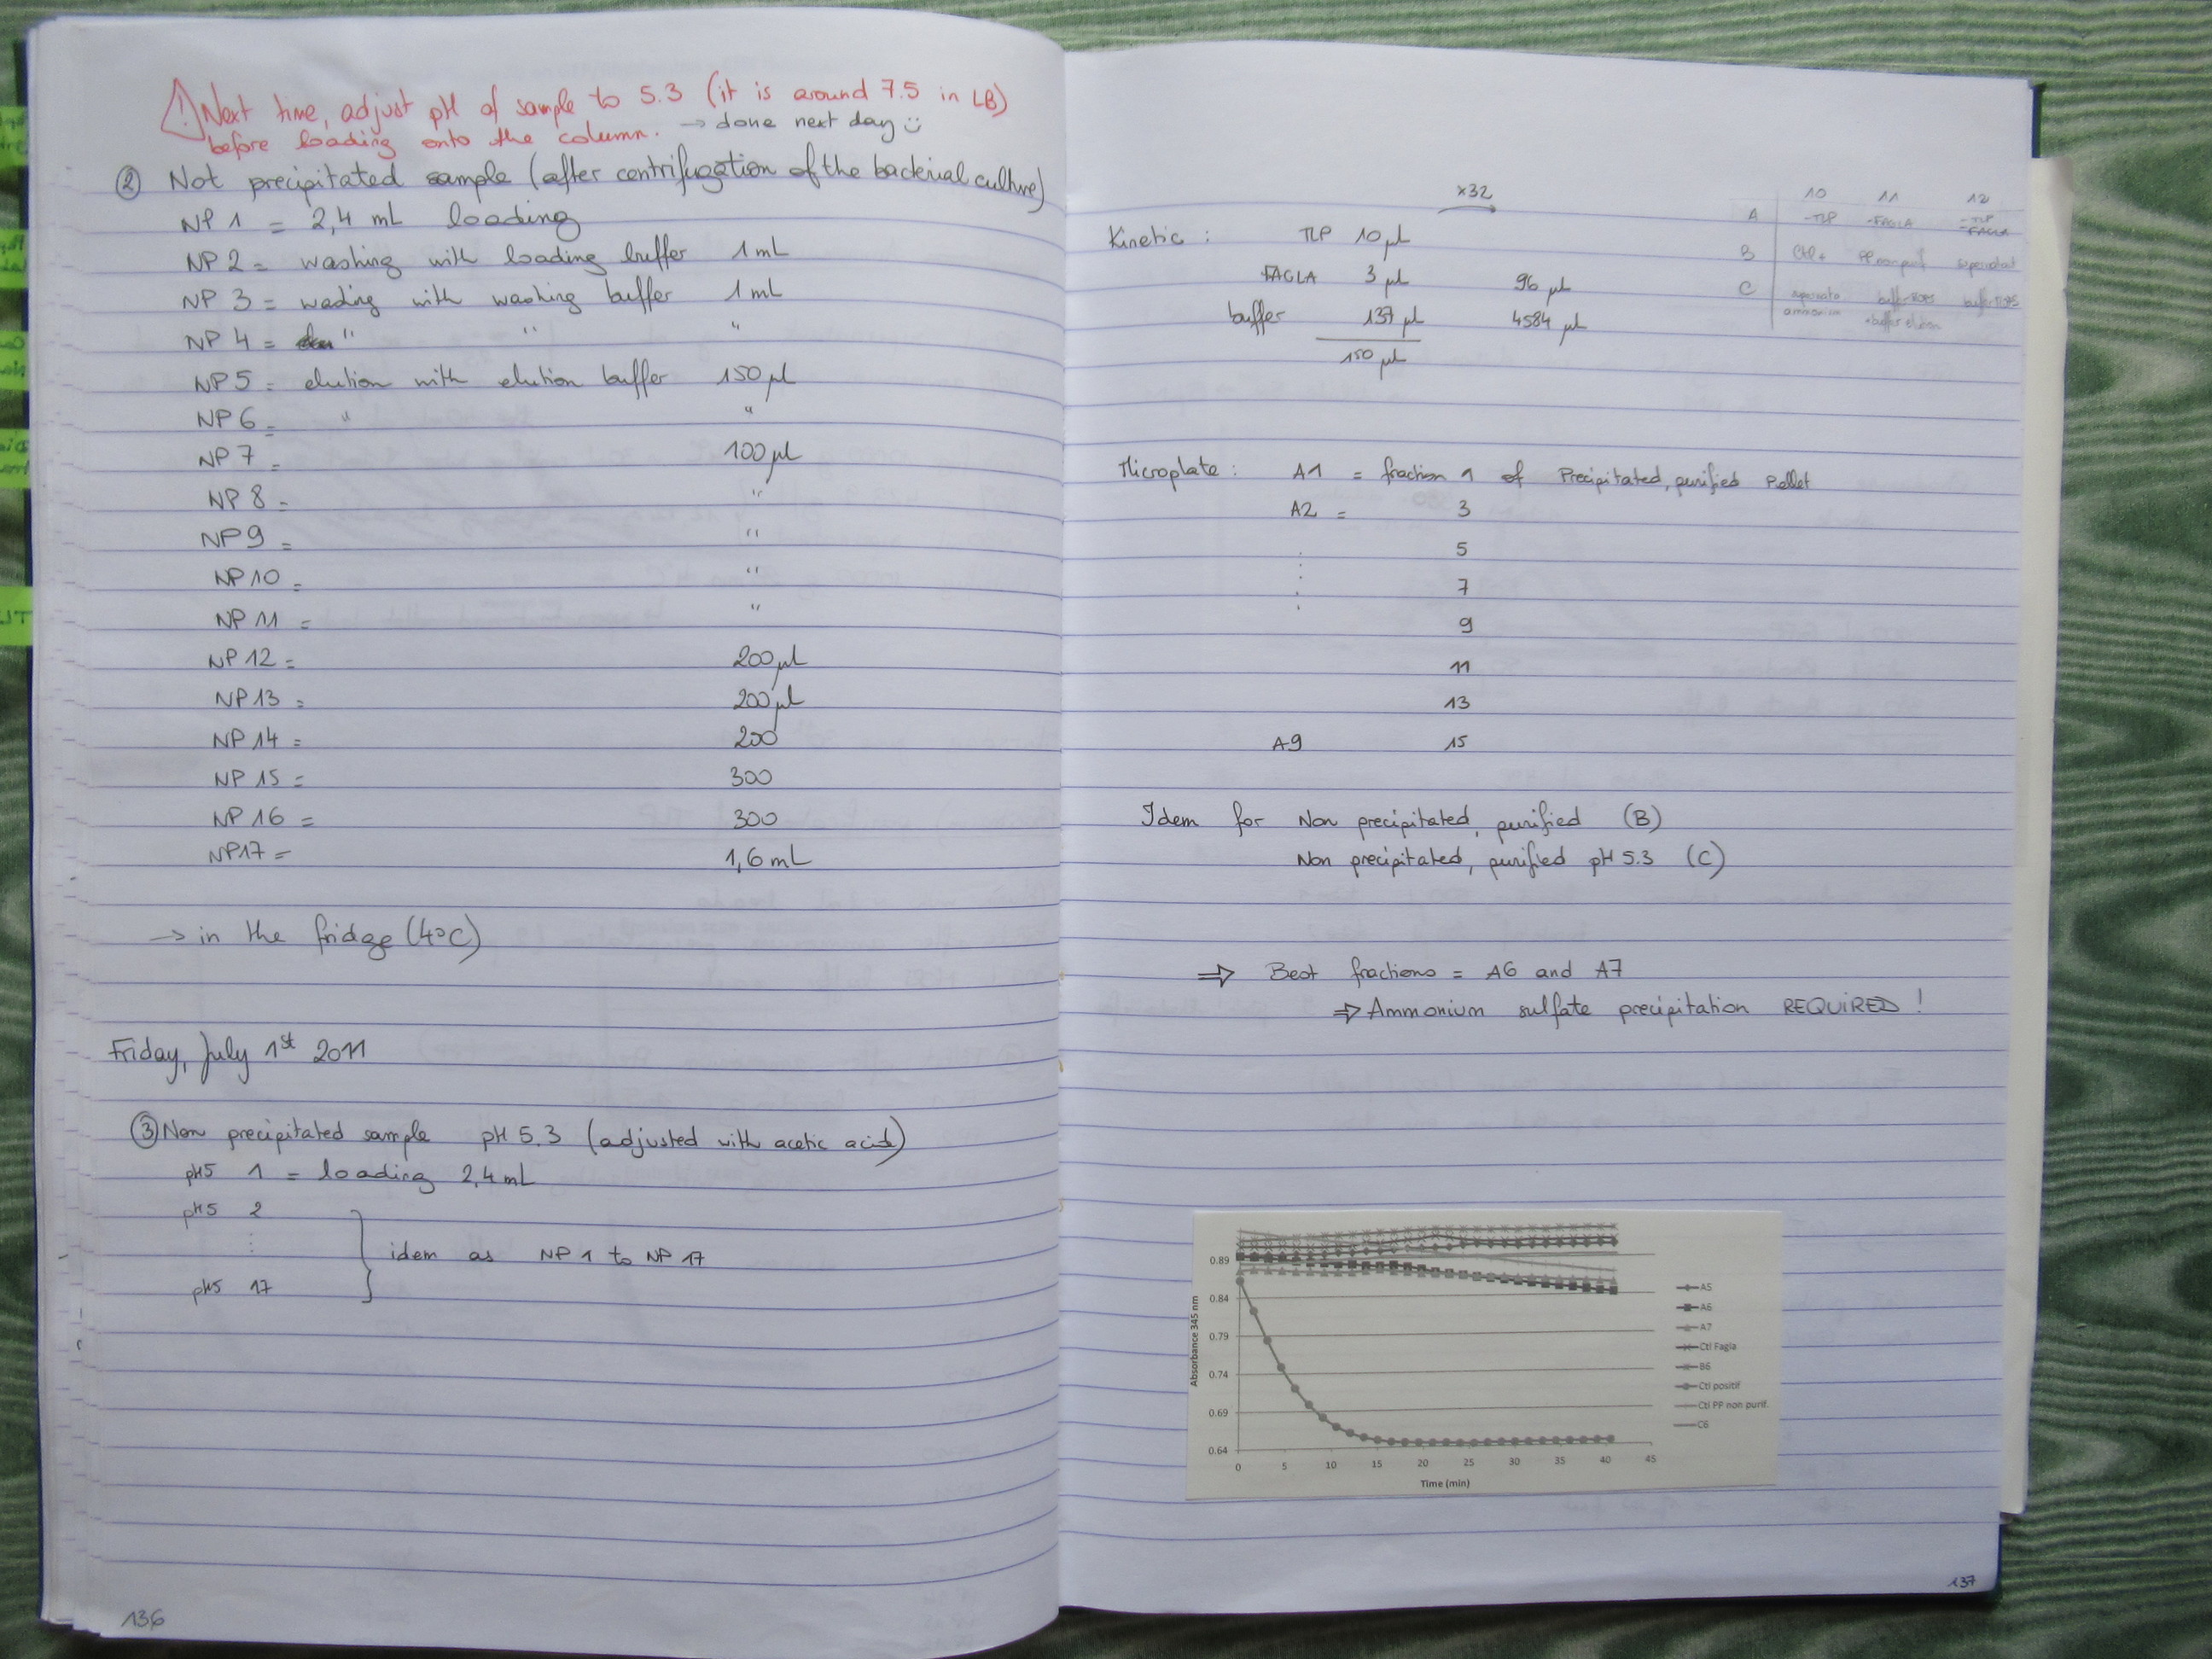 Next time, adjust pH of sample to 5.3 (it is around 7.5 in LB)
before loading onto the column. → done next day
② Not precipitated sample (after centrifugation of the bacterial culture)
NP 1 = 2,4 mL loading
NP 2 = washing with loading buffer 1 mL
NP 3 = wading with washing buffer 1 mL
NP 4 = " " "
NP 5 = elution with elution buffer 150 µL
NP 6 = " "
NP 7 = 100 µL
NP 8 = "
NP 9 = "
NP 10 = "
NP 11 = "
NP 12 = 200 µL
NP 13 = 200 µL
NP 14 = 200
NP 15 = 300
NP 16 = 300
NP 17 = 1,6 mL
→ in the fridge (4°C)
Friday, July 1st 2011
③ Non precipitated sample pH 5.3 (adjusted with acetic acid)
pH5 1 = loading 2,4 mL
pH5 2
idem as NP 1 to NP 17
pH5 17
136
x32
Kinetic : TLP 10 µL
FAGLA 3 µL 96 µL
buffer 137 µL 4584 µL
150 µL
10 11 12
A -TLP -FAGLA -TLP -FAGLA
B Ctl + PP non purif
C
Microplate : A1 = fraction 1 of Precipitated, purified Pellet
A2 = 3
5
7
9
11
13
A9 15
Idem for Non precipitated, purified (B)
Non precipitated, purified pH 5.3 (C)
⇒ Best fractions = A6 and A7
⇒ Ammonium sulfate precipitation REQUIRED !
Absorbance 345 nm
0.89
0.84
0.79
0.74
0.69
0.64
0 5 10 15 20 25 30 35 40 45
Time (min)
A5
A6
A7
Ctl Fagla
B6
Ctl positif
Ctl PP non purif.
C6
137